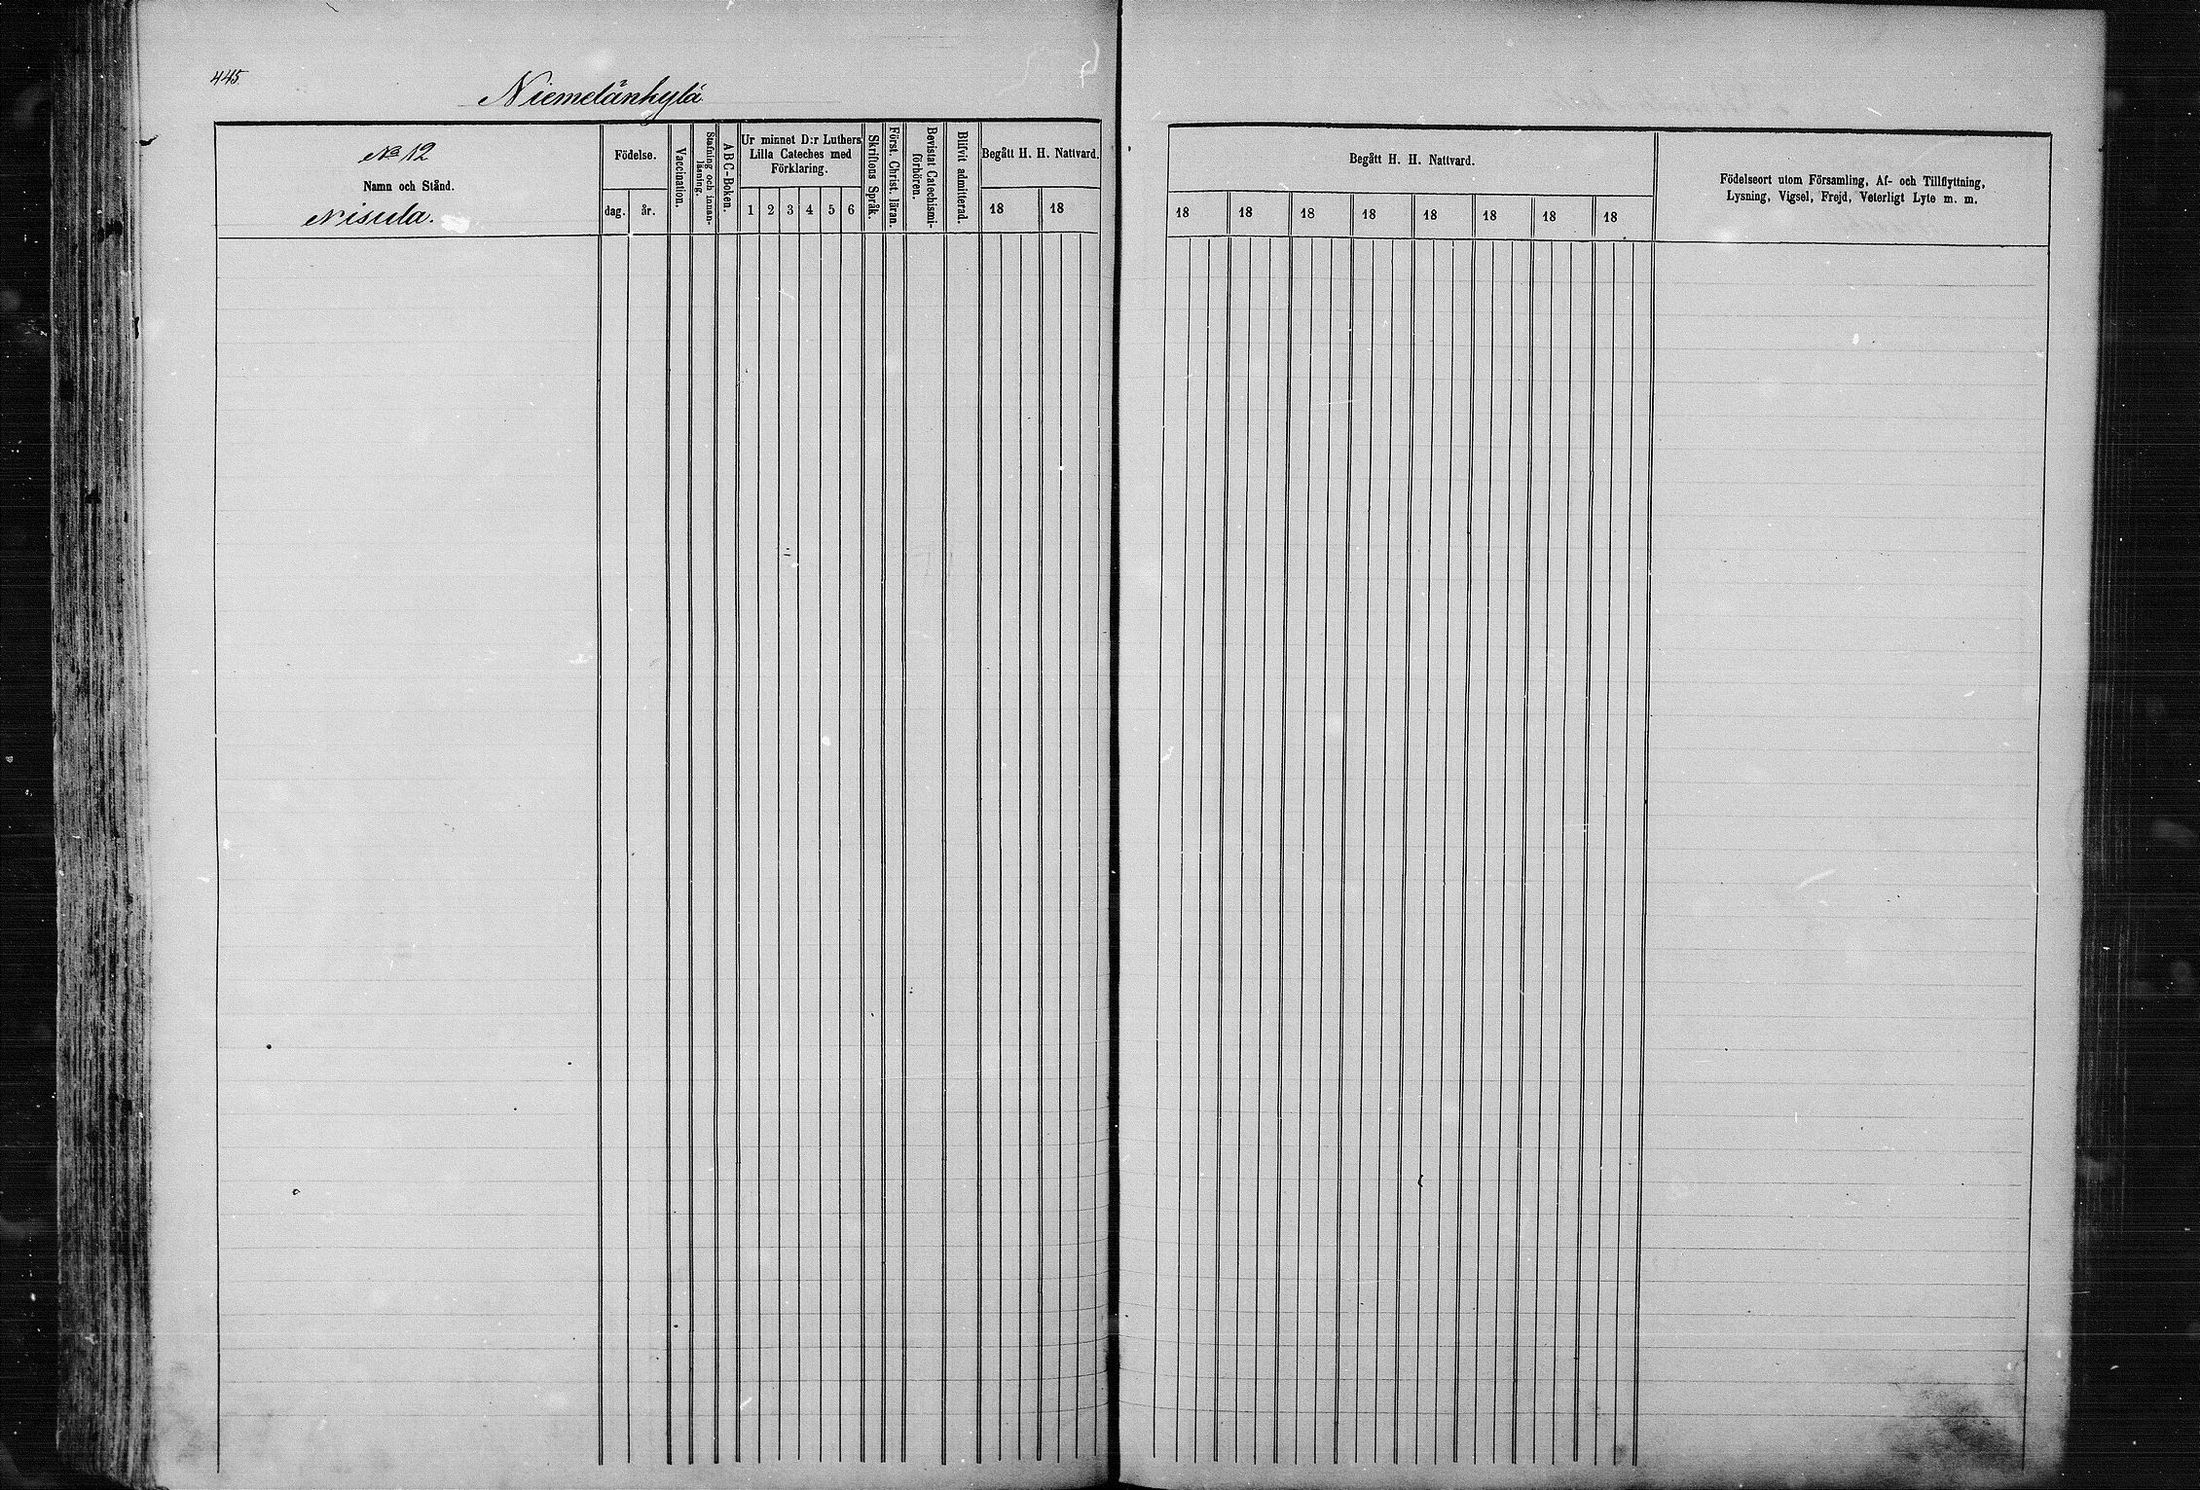 445.
Niemelänkylä
No 12
Namn och Stånd.
Nisula.
Födelse.
dag.
år.
Vaccination.
Stafning och innan-
läsning.
ABC-Boken.
Ur minnet D:r Luthers
Lilla Cateches med
Förklaring.
1 2 3 4 5 6
Skriftens Språk.
Först. Christ. läran.
Bevistat Catechismi-
förhören.
Blifvit admitterad.
Begått H. H. Nattvard.
18 18
Begått H. H. Nattvard.
18 18 18 18 18 18 18 18
Födelseort utom Församling, Af- och Tillflyttning,
Lysning, Vigsel, Frejd, Veterligt Lyte m. m.